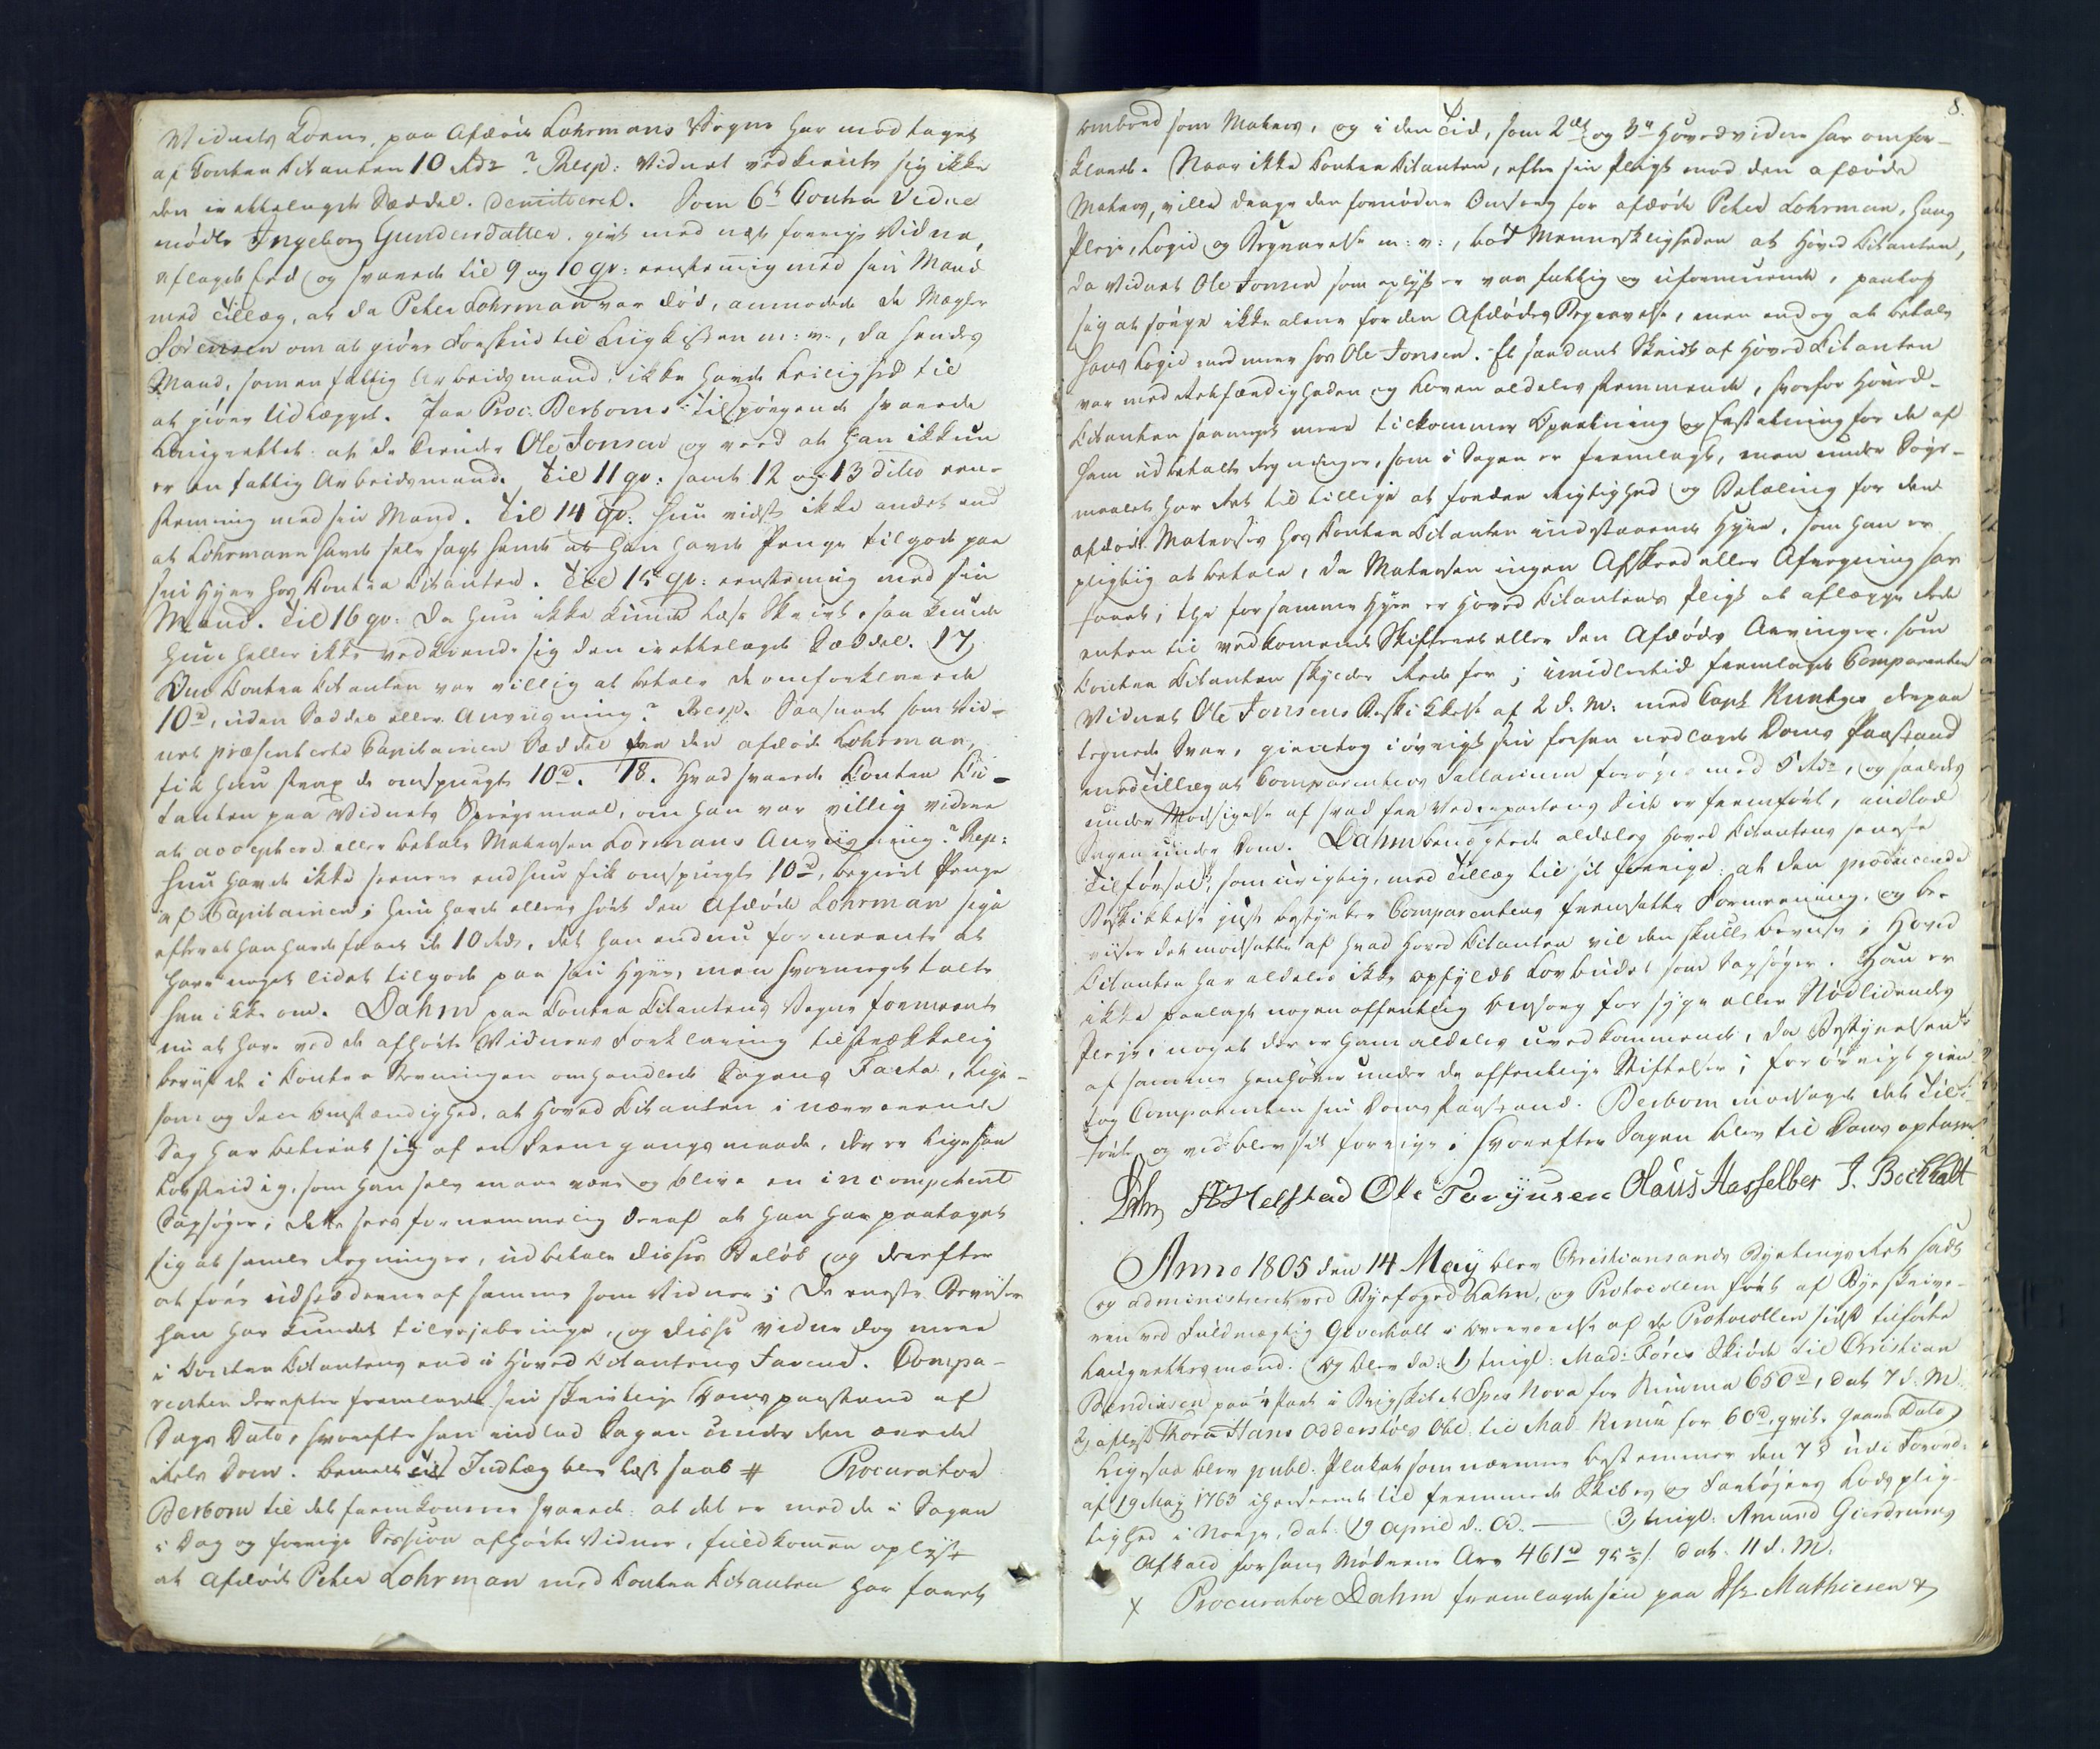 Vidnets Kone, paa Afdøde Lohrmans Vegne har modtaget
af Contra Citanten 10 Rdr? Resp: Vidnet vedkiendte sig ikke
den irettelagte Seddel. demitteret. Som 6te Contra Vidne
mødte Ingeborg Gundersdatter, givt med næst forrige Vidne,
aflagde Eed og svarede til 9 og 10 qv: eenstemig med sin Mand
med Tillæg, at da Peter Lohrman var død, anmodede de Mægler
Sørensen om at giøre Forskud til Liigkisten m: v:, da hendes
Mand, som en fattig Arbeidsmand, ikke havde Leilighed til
at giøre Udlægget. Paa Proc: Berboms Tilspørgende svarede
Laugrettet: at de kiender Ole Jonsen og veed at han ikkun
er en fattig Arbeidsmand. Til 11 qv: samt 12 og 13 dito een-
stemmig med sin Mand. Til 14 qv: hun vidste ikke andet end
at Lohrmann havde selv sagt hende at han havde Penge tilgode paa
sin Hyre hos Contra Citanten. Til 15 qv: eenstemig med sin
Mand. Til 16 qv: Da hun ikke kunde læse Skrivt, saa kunde
hun heller ikke vedkiende sig den irettelagte Seddel. 17,
Om Contra Citanten var villig at betale de omforklarede
10 rd, uden Seddel eller Anviisning? Resp. Saasnart som Vid-
net præsenterte Capitainen Seddel fra den afdøde Lohrman,
fik hun strax de omspurgte 10 rd. 18. Hvad svarede Contra Ci-
tanten paa Vidnets Spørgsmaal, om han var villig videre
at acceptere eller betale Matrosen Lormans Anviisning? Resp:
hun havde ikke seenere end hun fik omspurgte 10 rd, begiert Penge
af Capitainen; hun havde ellers hørt den Afdøde Lohrman sige
efterat han havde faaet de 10 Rdr, det han endnu formeente at
have noget lidet tilgode paa sin Hyre, men hvormeget talte
han ikke om. Dahm paa Contra Citantens Vegne formeente
nu at have ved de afhørte Vidners Forklaring tilstrækkelig
beviist de i Contra Stevningen omhandlede Sagens Facta, lige-
som og den Omstændighed, at Hoved Citanten i nærværende
Sag har betient sig af en Fremgangsmaade, der er ligesaa
lovstridig, som han selv maae være og blive en incompetent
Sagsøger; dette sees fornemmelig deraf at han har paataget
sig at samle Regninger, udbetale disses Beløb og derefter
at føre udstæderne af samme som Vidner; De eneste Beviiser
han har kundet tilvejebringe, og disse vidne dog mere
i Contra Citantens end i Hoved Citantens Faveur. Compa-
renten derefter fremlagde sin skrivtlige Doms paastand af
Dags Dato, hvorefter han indlod Sagen under den ærede
Rets Dom. bemelte Indlæg blev læst saal # Procurator
Berbom til det fremkomne svarede: at det er med de i Sagen
i Dag og forrige Session afhørte Vidner, fuldkommen oplyst
at Afdøde Peter Lohrman med Contra Citanten har faret
8.
ombord som Matros, og i den Tid, som 2det og 3die Hovedvidne har omfor-
klaret. Naar ikke Contra Citanten, efter sin Pligt mod den afdøde
Matros, vilde drage den fornødne Omsorg for afdøde Peter Lohrman, hans
Pleje, Logie og Begravelse m: v:, bød Menneskligheden at Hoved Citanten,
da Vidnet Ole Jonsen som oplyst er var fattig og uformuende, paatog
sig at sørge ikke alene for den Afdødes Begravelse, men endog at betale
hans Logie med mere hos Ole Jonsen. Et saadant Skridt af Hoved Citanten
var med Retsændigheden og Loven aldeles stemmende, hvorfor Hoved-
Citanten saameget mere tilkommer Opretning og Erstatning for de af
ham udbetalte Regninger, som i Sagen er fremlagt, men under Søgs-
maalet har Ret til tillige at fordre Rigtighed og Betaling for den
afdøde Matroses hos Contra Citanten indestaaende Hyre, som han er
pligtig at betale, da Matrosen ingen Afskeed eller Afregning har
faaet, thi for samme Hyre er Hoved Citantens Pligt at aflægge Rede
enten til vedkomende Skifteret eller den Afdødes Arvinger, som
Contra Citanten skylder Rede for; imidlertid fremlagde Comparenten
Vidnet Ole Jonsens Beskikkelse af 2 d. M: med Capt Runtges derpaa
tegnede Svar, gientog iøvrigt sin forhen nedlagde Doms Paastand
med Tillæg at Comparentens Sallarium forøges med 5 Rdr, og saaledes
under Modsigelse af hvad fra Vederpartens Side er fremført, indlod
Sagen under Dom. Dahm benægtede aldeles Hoved Citantens seneste
Tilførsel, som urigtig, med Tillæg til sit forrige: at den producerede
Beskikkelse just bestyrker Comparentens fremsatte Formeening, og be-
viser det modsatte af hvad Hoved Citanten vil den skulle bevise; Hoved
Citanten har aldeles ikke opfyldt Lovbudet som Sagsøger. Han er
ikke paalagt nogen offentlig Omsorg for syge eller Nødlidendes
Pleje, noget der er ham aldeles uvedkommende, da Bestyrelsen
af samme henhører under de offentlige Stiftelser; for øvrigt gien-
tog Comparenten sin Doms Paastand. Berbom modsagde det Til-
førte og ved blev sit forrige; hvorefter Sagen blev til Doms optagen.
Dahm HHelstad Ole Torjusen Claus Hasselber J. Bockhalt
Anno 1805 den 14 May blev Christiansands Byetings Ret sadt
og administreret ved Byefoged Dahm, og Protocollen ført af Byeskrive-
ren ved Fuldmægtig Goverholt i Overværelse af de Protocollen sidst tilførte
Laugrettesmænd. Og blev da: 1, tingl: Mad: Føres Skiøde til Christian
Bendixsen paa ¼ Part i Brigskibet Spes Nova for Summa 650 rd, dat 7 d. M.
2, aflyst Thora Hans Odderstøls Obl. til Mad. Kruu for 60 rd, qvit. Gaars Dato
Ligesaa blev publ: Plakat som nærmere bestemmer den 7 § udi Forord:
af 19 May 1763 i Henseende til fremmede Skibes og Fartøjers Lodsplig-
tighed i Norge, dat: 19 April d. A. — 3, tingl: Amund Gierdrums
Afkald for hans Mødrene Arv 461 rd 95 ⅔ s. dat. 11 d. M.
x Procurator Dahm fremlagde sin paa Hr Mathiesen x